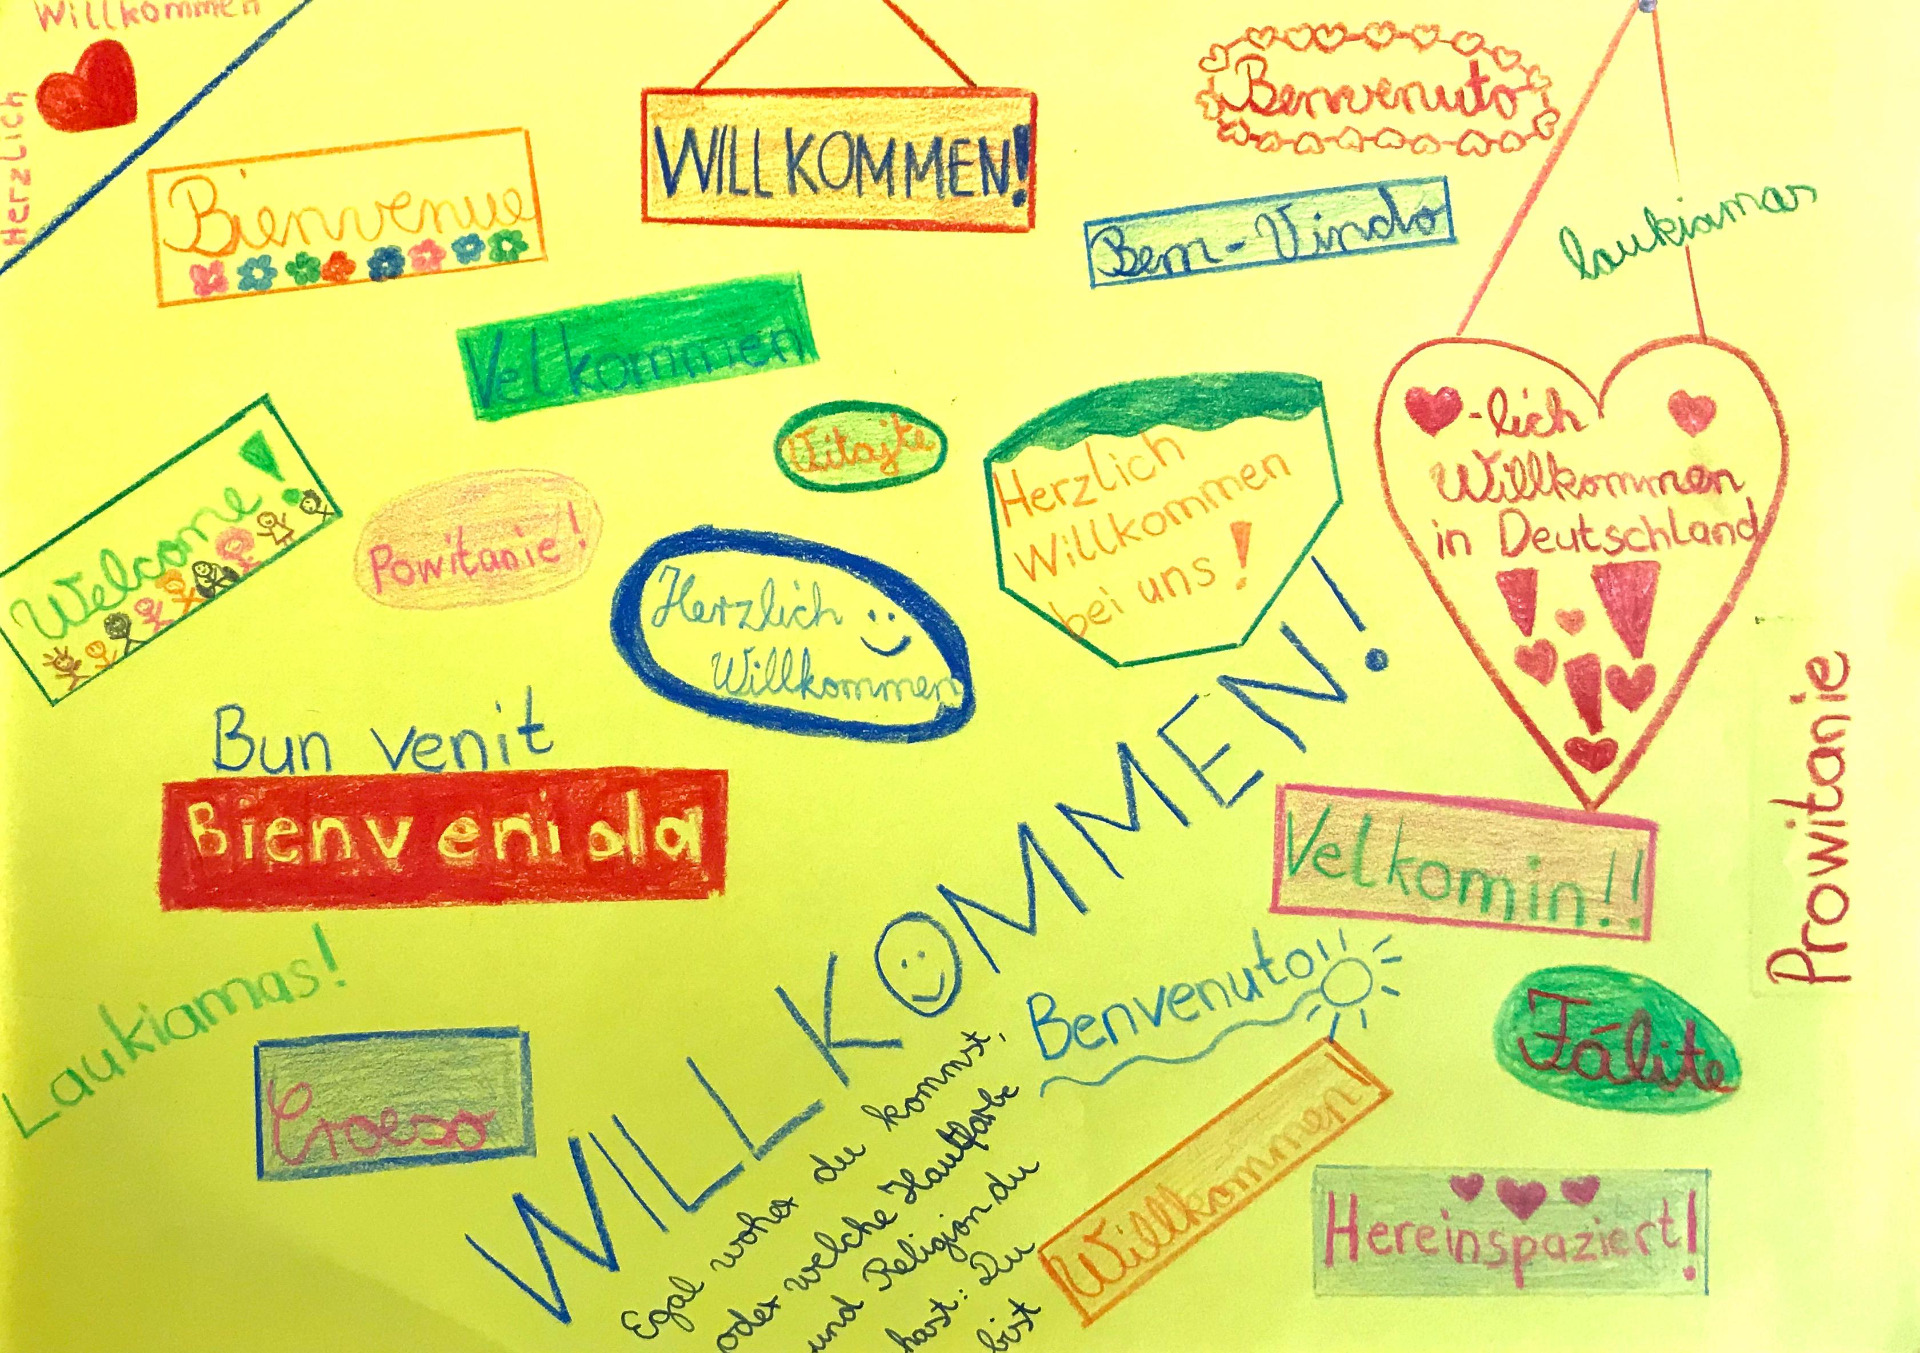 Willkommen
Herzlich
WILLKOMMEN!
Benvenuto
Bienvenue
Bem-Vindo
laukiamas
Velkommen
Vitajte
♥-lich
Willkommen
in Deutschland
!!!
Herzlich
Willkommen
bei uns!
Welcome!
Powitanie!
Herzlich
Willkommen
Bun venit
Bienvenida
WILLKOMMEN!
Velkomin!!
Prowitanie
Laukiamas!
Benvenuto!!
Fálite
Croeso
Egal woher du kommst,
oder welche Hautfarbe
und Religion du
hast: Du
bist
Willkommen
Hereinspaziert!